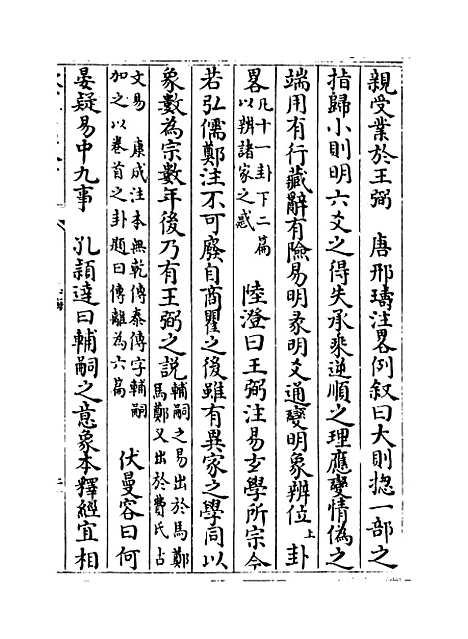 親受業於王弼　唐邢璹注畧例叙曰大則摠一部之
指歸小則明六爻之得失承乘逆順之理應變情偽之
端用有行藏辭有險易明彖明爻通變明象辨位上卦
畧凡十一卦下二篇
以辨諸家之惑　陸澄曰王弼注易玄學所宗今
若弘儒鄭注不可廢自商瞿之後雖有異家之學同以
象數為宗數年後乃有王弼之説輔嗣之易出於馬鄭
馬鄭又出於費氏古
文易　康成注本無乾傳泰傳字輔嗣
加之以卷首之卦題曰傳離為六篇　伏曼容曰何
晏疑易中九事　孔頴達曰輔嗣之意象本釋經宜相